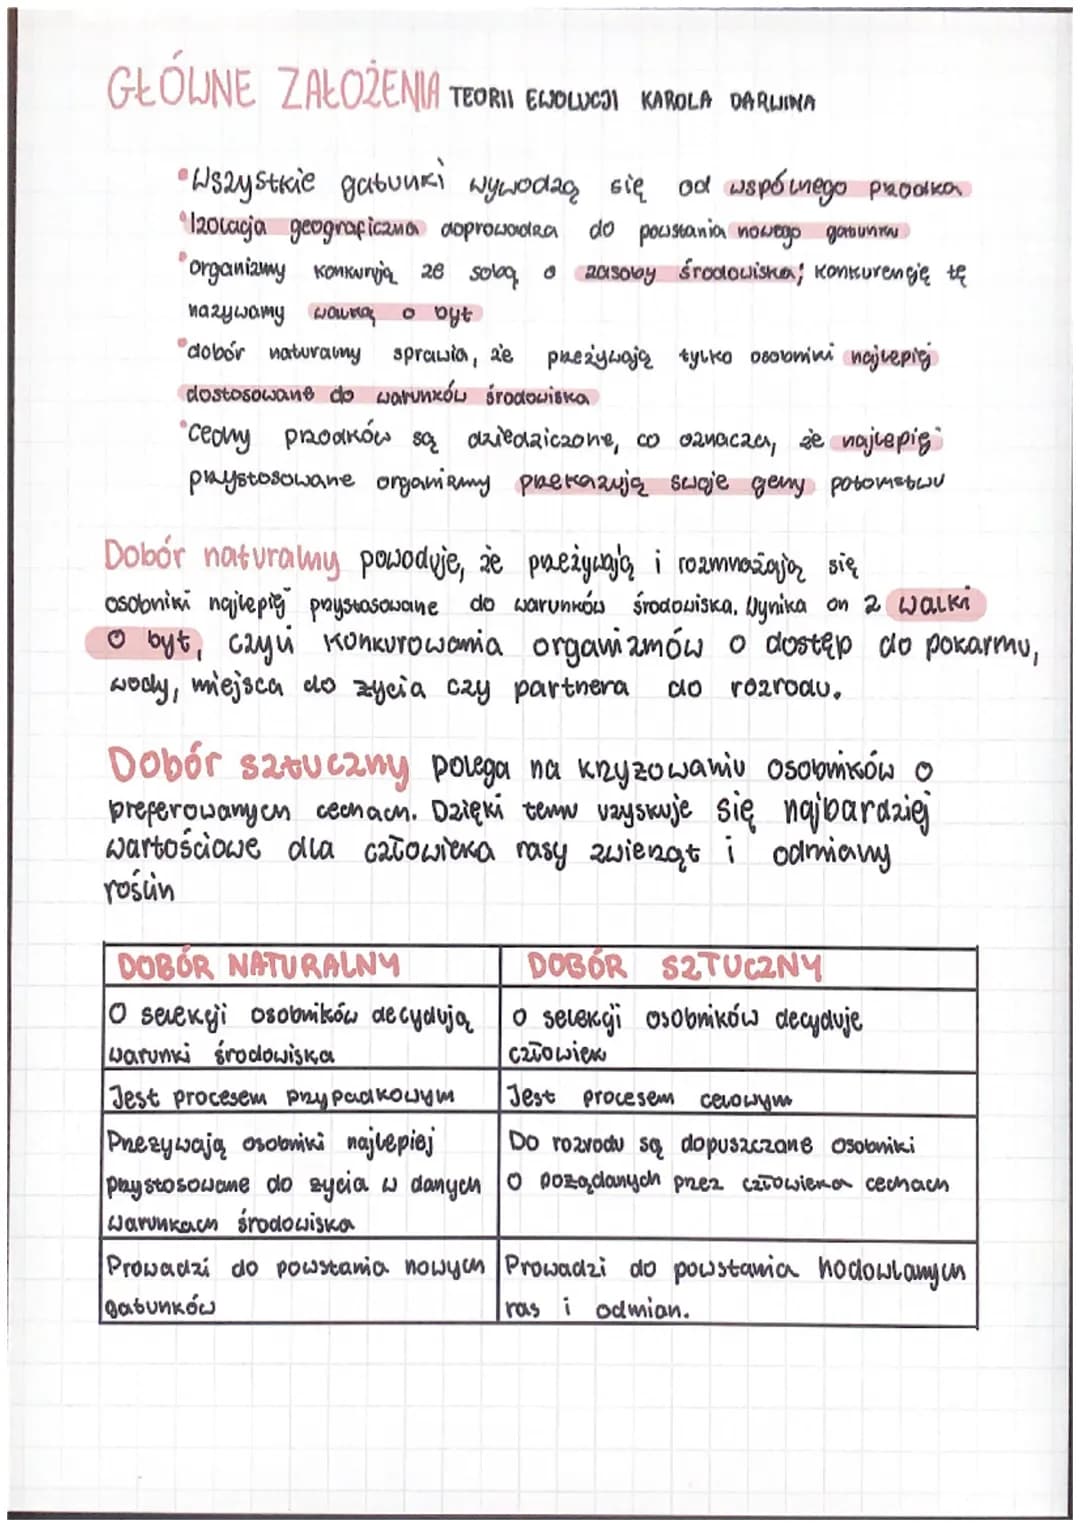 GŁÓWNE ZAŁOŻENIA TEORII EWOLUCJI KAROLA DARWINA
•Wszystkie gatunki wywodzą się od wspólnego przodka
•Izolacja geograficzna doprowadza do powstania nowego gatunku
•organizmy konkurują ze sobą o zasoby środowiska; konkurencję tę
nazywamy walką o byt
•dobór naturalny sprawia, że przeżywają tylko osobniki najlepiej
dostosowane do warunków środowiska
•cechy przodków są dziedziczone, co oznacza, że najlepiej
przystosowane organizmy przekazują swoje geny potomstwu
Dobór naturalny powoduje, że przeżywają i rozmnażają się
osobniki najlepiej przystosowane do warunków środowiska. Wynika on z walki
o byt, czyli konkurowania organizmów o dostęp do pokarmu,
wody, miejsca do życia czy partnera do rozrodu.
Dobór sztuczny polega na krzyżowaniu osobników o
preferowanych cechach. Dzięki temu uzyskuje się najbardziej
wartościowe dla człowieka rasy zwierząt i odmiany
roślin
DOBÓR NATURALNY DOBÓR SZTUCZNY
O selekcji osobników decydują o selekcji osobników decyduje
warunki środowiska człowiek
Jest procesem przypadkowym Jest procesem celowym
Przeżywają osobniki najlepiej Do rozrodu są dopuszczane osobniki
przystosowane do życia w danych o pożądanych przez człowieka cechach
warunkach środowiska
Prowadzi do powstania nowych Prowadzi do powstania hodowlanych
gatunków ras i odmian.